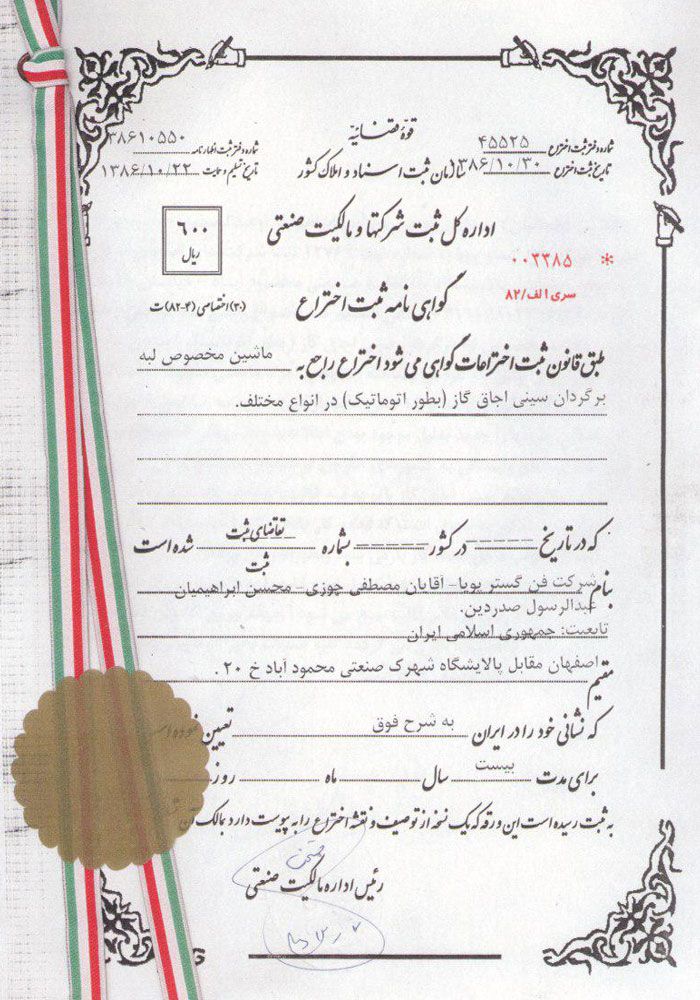 قوهٔ قضائیه
شماره دفتر ثبت اختراع ۴۵۵۲۵
شماره دفتر ثبت اظهارنامه ۳۸۶۱۰۵۵۰
تاریخ ثبت اختراع ۱۳۸۶/۱۰/۳۰
سازمان ثبت اسناد و املاک کشور
تاریخ تسلیم و حمایت ۱۳۸۶/۱۰/۲۲
اداره کل ثبت شرکتها و مالکیت صنعتی
۶۰۰
ریال
* ۰۰۲۲۸۵
سری الف/۸۲
گواهی نامه ثبت اختراع
(۳۰) اختصاصی (۴-۸۲) ت
طبق قانون ثبت اختراعات گواهی می شود اختراع راجع به ماشین مخصوص لبه
برگردان سینی اجاق گاز (بطور اتوماتیک) در انواع مختلف.
که در تاریخ ------ در کشور ------ بشماره تقاضای ثبت شده است
ثبت
بنام شرکت فن گستر پویا- آقایان مصطفی جوزی- محسن ابراهیمیان
عبدالرسول صدردین.
تابعیت: جمهوری اسلامی ایران
مقیم اصفهان مقابل پالایشگاه شهرک صنعتی محمود آباد خ ۲۰ .
که نشانی خود را در ایران به شرح فوق تعیین نموده است
برای مدت بیست سال ماه روز
به ثبت رسیده است این ورقه که یک نسخه از توصیف و نقشه اختراع را به پیوست دارد بمالک آن
رئیس اداره مالکیت صنعتی